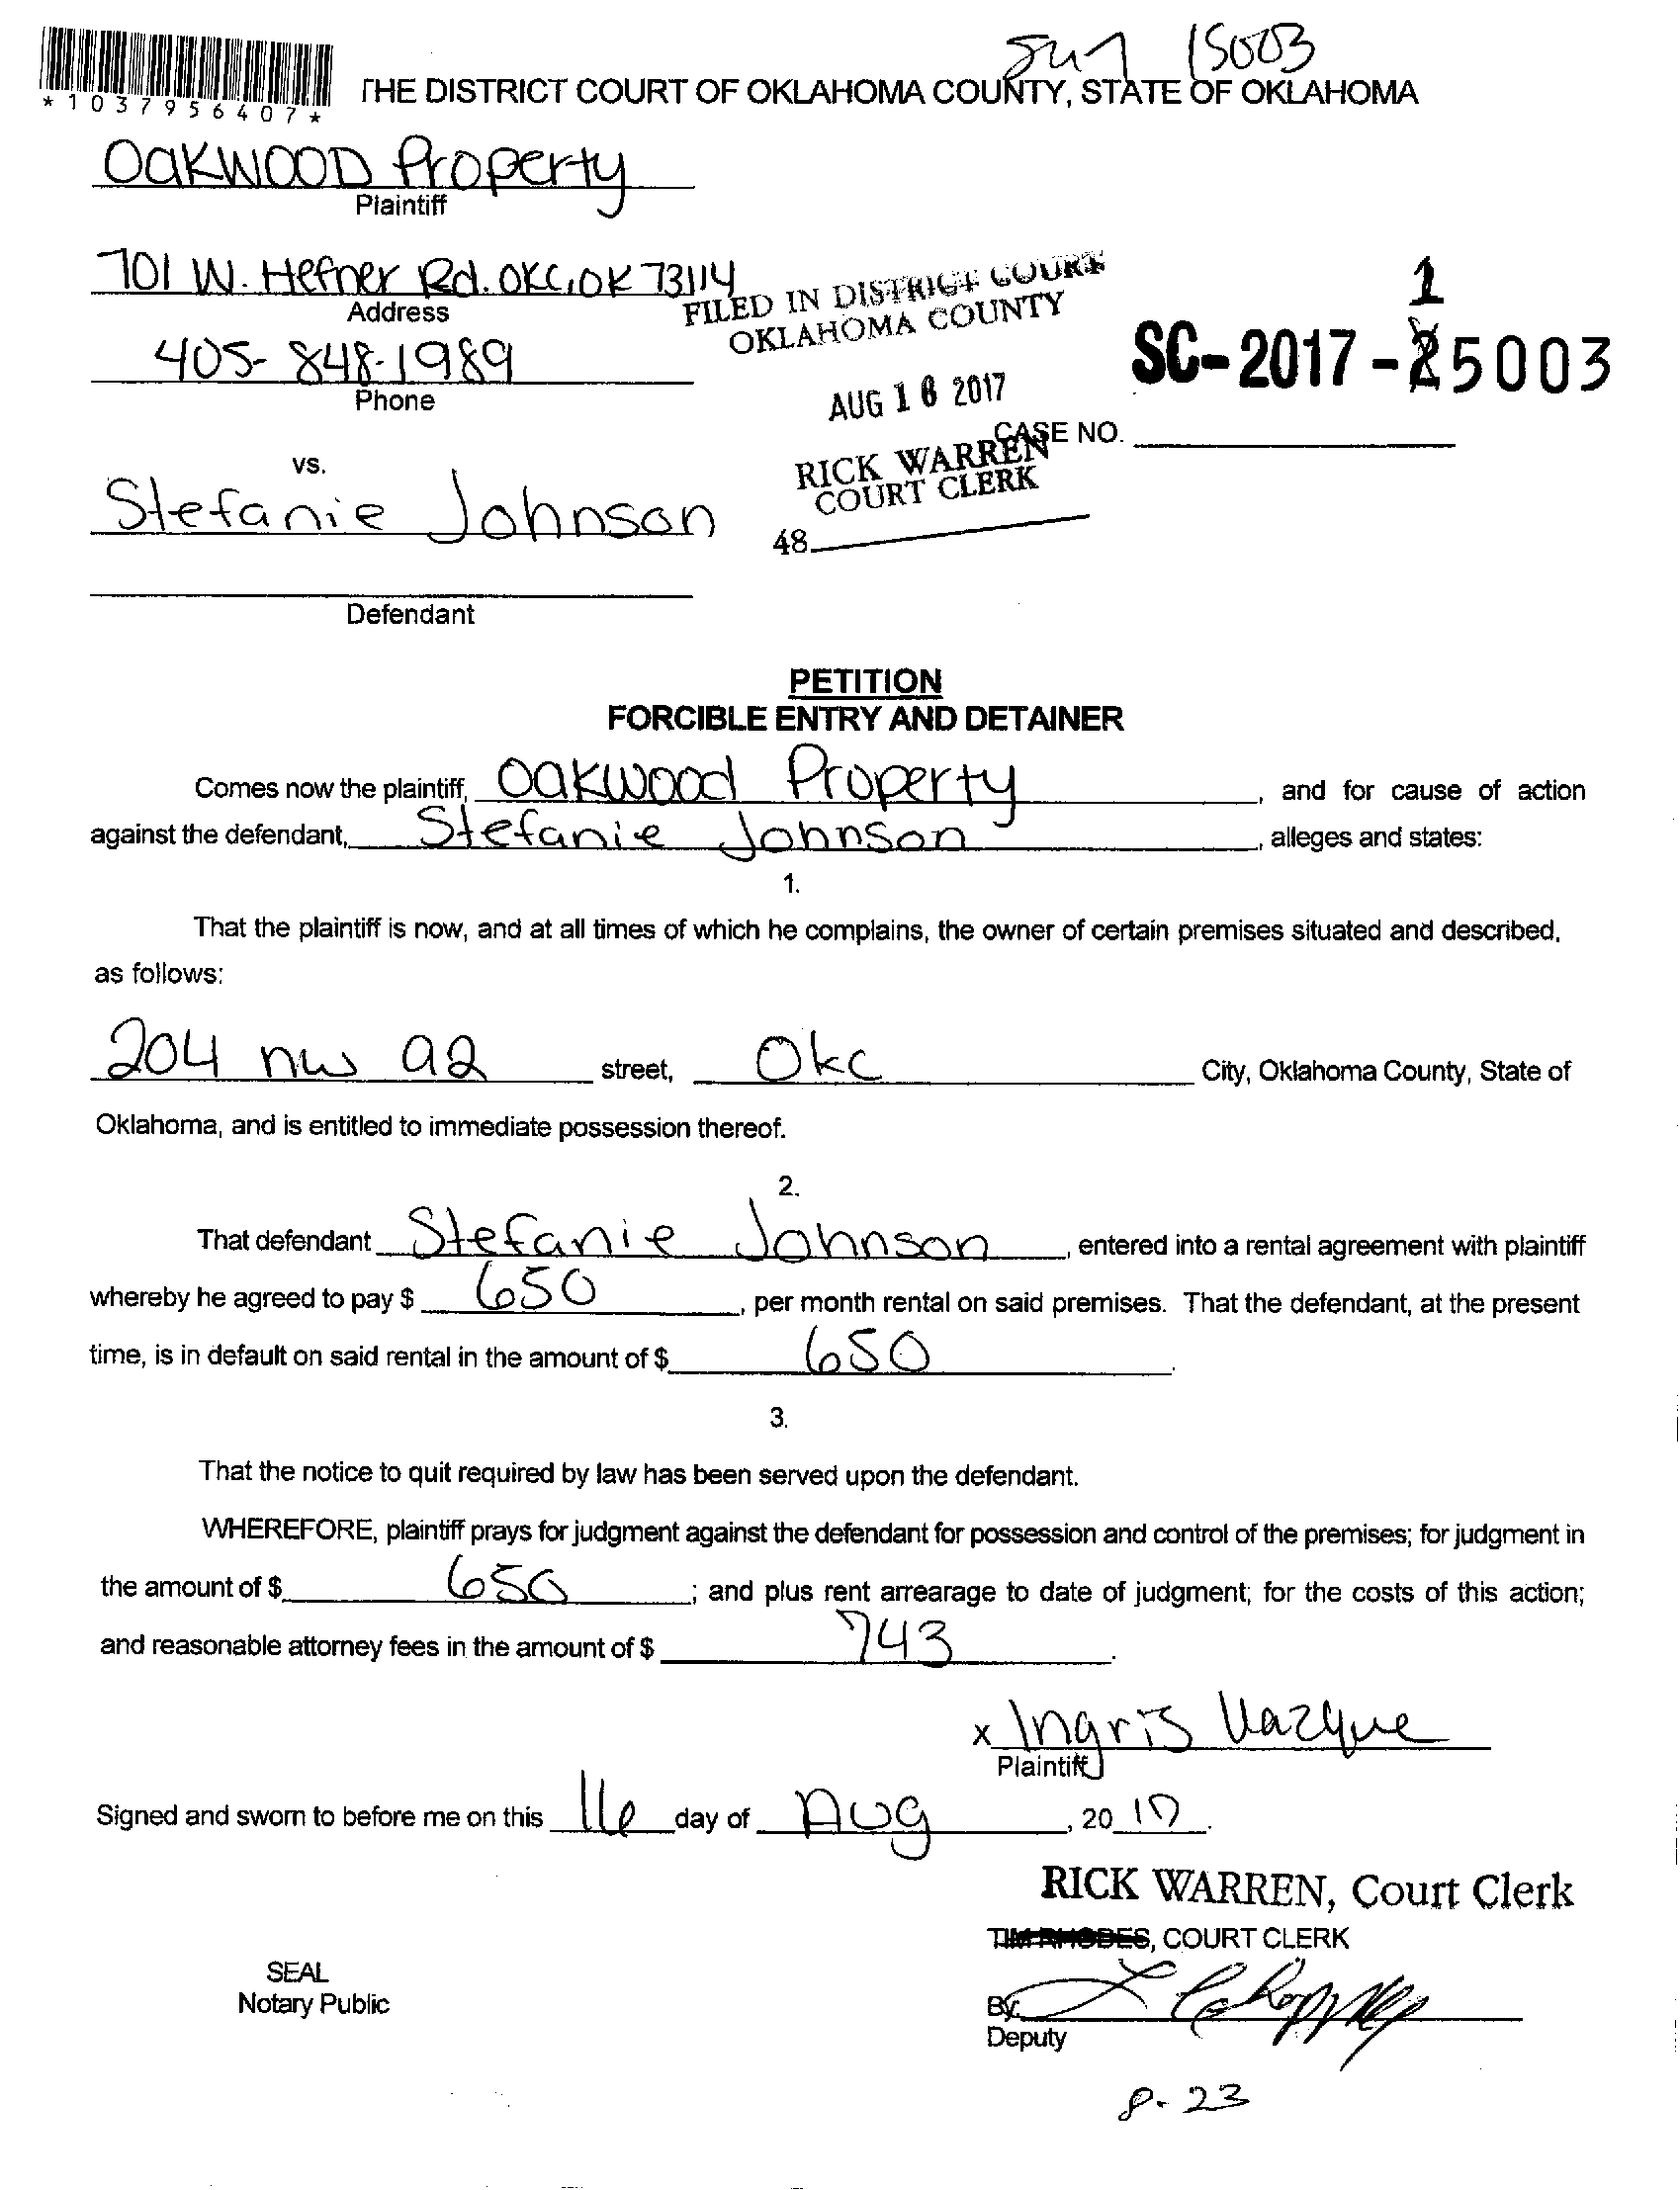 15003
*1037956407*
THE DISTRICT COURT OF OKLAHOMA COUNTY, STATE OF OKLAHOMA
Oakwood Property
Plaintiff
701 W. Hefner Rd. OKC, OK 73114
Address
405-848-1989
Phone
FILED IN DISTRICT COURT
OKLAHOMA COUNTY
AUG 16 2017
RICK WARREN
COURT CLERK
48
1
SC-2017-25003
CASE NO.
vs.
Stefanie Johnson
Defendant
PETITION
FORCIBLE ENTRY AND DETAINER
Comes now the plaintiff, Oakwood Property, and for cause of action
against the defendant, Stefanie Johnson, alleges and states:
1.
That the plaintiff is now, and at all times of which he complains, the owner of certain premises situated and described,
as follows:
204 nw 92 street, Okc City, Oklahoma County, State of
Oklahoma, and is entitled to immediate possession thereof.
2.
That defendant Stefanie Johnson, entered into a rental agreement with plaintiff
whereby he agreed to pay $ 650, per month rental on said premises. That the defendant, at the present
time, is in default on said rental in the amount of $ 650.
3.
That the notice to quit required by law has been served upon the defendant.
WHEREFORE, plaintiff prays for judgment against the defendant for possession and control of the premises; for judgment in
the amount of $ 650; and plus rent arrearage to date of judgment; for the costs of this action;
and reasonable attorney fees in the amount of $ 743.
x Ingris Vazque
Plaintiff
Signed and sworn to before me on this 16 day of Aug, 2017.
RICK WARREN, Court Clerk
TIM RHODES, COURT CLERK
SEAL
Notary Public
By
Deputy
8-23